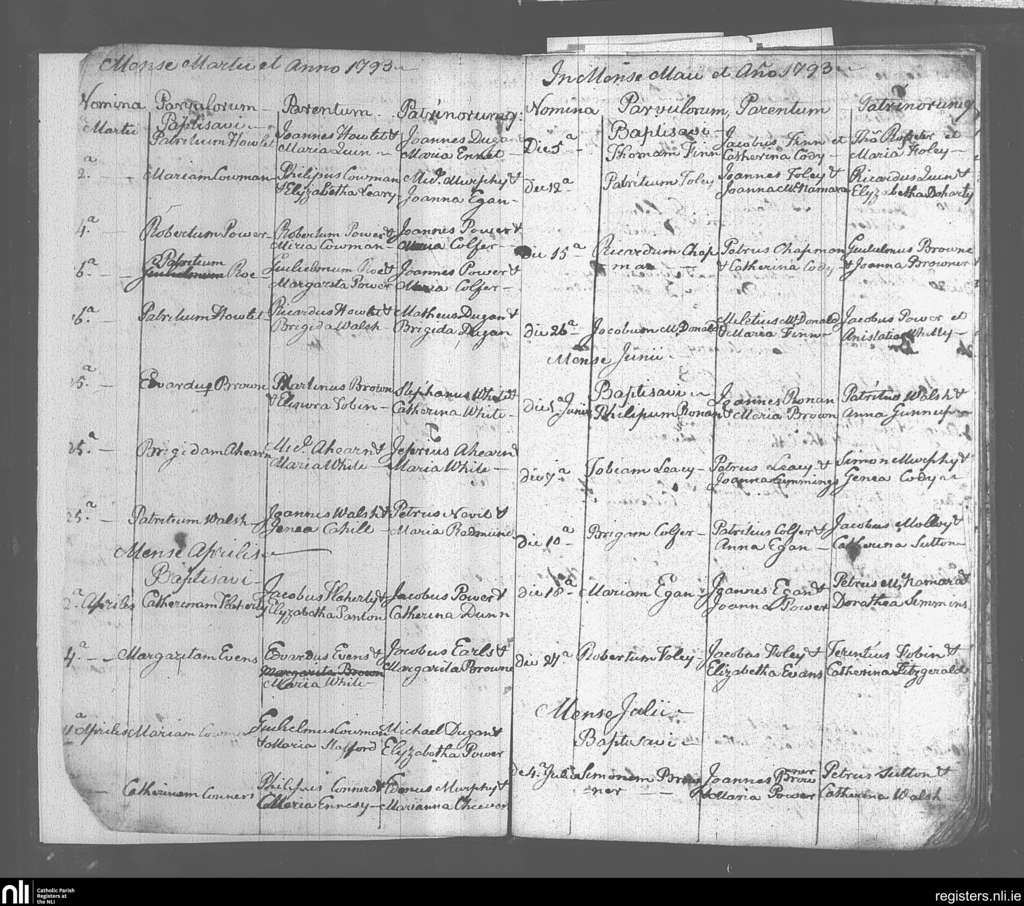 Mense Martii et Anno 1793
Nomina Parvulorum Parentum Patrinorumq:
Martii Baptisavi
Patritium Howlet Joannes Howlet & Joannes Dugan
Maria Quin Maria Ennet
2.a Mariam Cowman Philipus Cowman Mic. Murphy &
& Elyzabetha Leary Joanna Egan
4.a Robertum Power Robertum Power & Joannes Power &
Maria Cowman Maria Colfer
6.a Patritium
Gulielmum Roe Gulielmum Roe & Joannes Power &
Margarita Power Maria Colfer
Patritium Howlet Ricardus Howlet & Matheus Dugan &
Brigida Walsh Brigida Dugan
15.a Evardus Brown Martinus Brown Stephanus White &
Tobin Catharina White
25.a Brigidam Ahearn Mic. Ahearn & Ahearn
Maria White Maria White
25.a Patritium Walsh Joannes Walsh & Petrus Nevil &
Genea Cahill Maria Redmund
Mense Aprilis
Baptisavi
2.a Apriles Catherinam Flaherty Jacobus Flaherty & Jacobus Power &
Elyzabetha Panton Catherina Dunn
4.a Margaritam Evens Evardus Evens & Jacobus Earls &
Margarita Brown Margarita Browne
Maria White
11.a Apriles Mariam Cowman Gulielmus Cowman Michael Dugan &
& Maria Stafford Elyzabetha Power
Catherinam Conners Philipus Conners & Edenus Murphy &
Maria Ennesy Marianna Cheever
In Mense Maii et Año 1793
Nomina Parvulorum Parentum Patrinorumq
Die 5.a Baptisavi
Thomam Finn Jacobus Finn et Thos Rofsiter et
Catherina Cody Maria Foley
die 12.a Patritium Foley Joannes Foley & Ricardus Quin &
Joanna McNamara Elyzabetha Doharty
die 15.a Ricardum Chap Petrus Chapman Gulielmus Browne
man & Catherina Cody & Joanna Browner
die 26.a Jacobum McDonald Miletius McDonald Jacobus Power et
& Maria Finn Anistatia Whitty
Mense Junii
Baptisavi
die 5.a Junii Philipum Ronan Joannes Ronan Patritus Walsh &
& Maria Brown Anna
die 7.a Tobiam Leacy Petrus Leacy & Simon Murphy &
Joanna Cummings Genea Cody
die 10.a Brigam Colfer Patritius Colfer & Jacobus Molloy &
Anna Egan Catherina Sutton
die 18.a Mariam Egan Joannes Egan & Petrus McNamara &
Joanna Power Dorathea Simmins
die 24.a Robertum Foley Jacobus Foley & Terintius Tobin &
Elizabetha Evans Catherina Fitzgerald
Mense Julii
Baptisavi
de 4.a Julii Simonem Brow Joannes Brow ner Petrus Sutton &
ner & Maria Power Catherina Walsh
nli Catholic Parish
Registers at
the NLI
registers.nli.ie